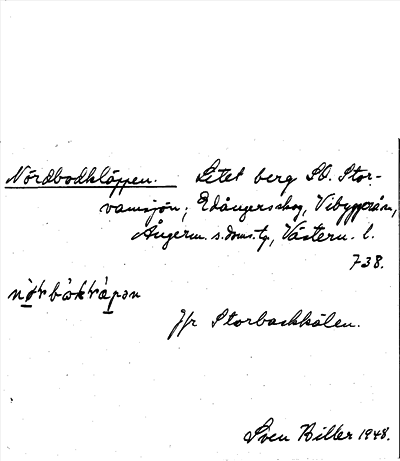 Nördbodkläppen. Litet berg SO. Stor-
vamsjön; Edångers skog, Vibyggerån,
Ångerm. s. doms. tg, Västern. l.
738.
Jfr Storbackkälen.
Sven Biller 1948.